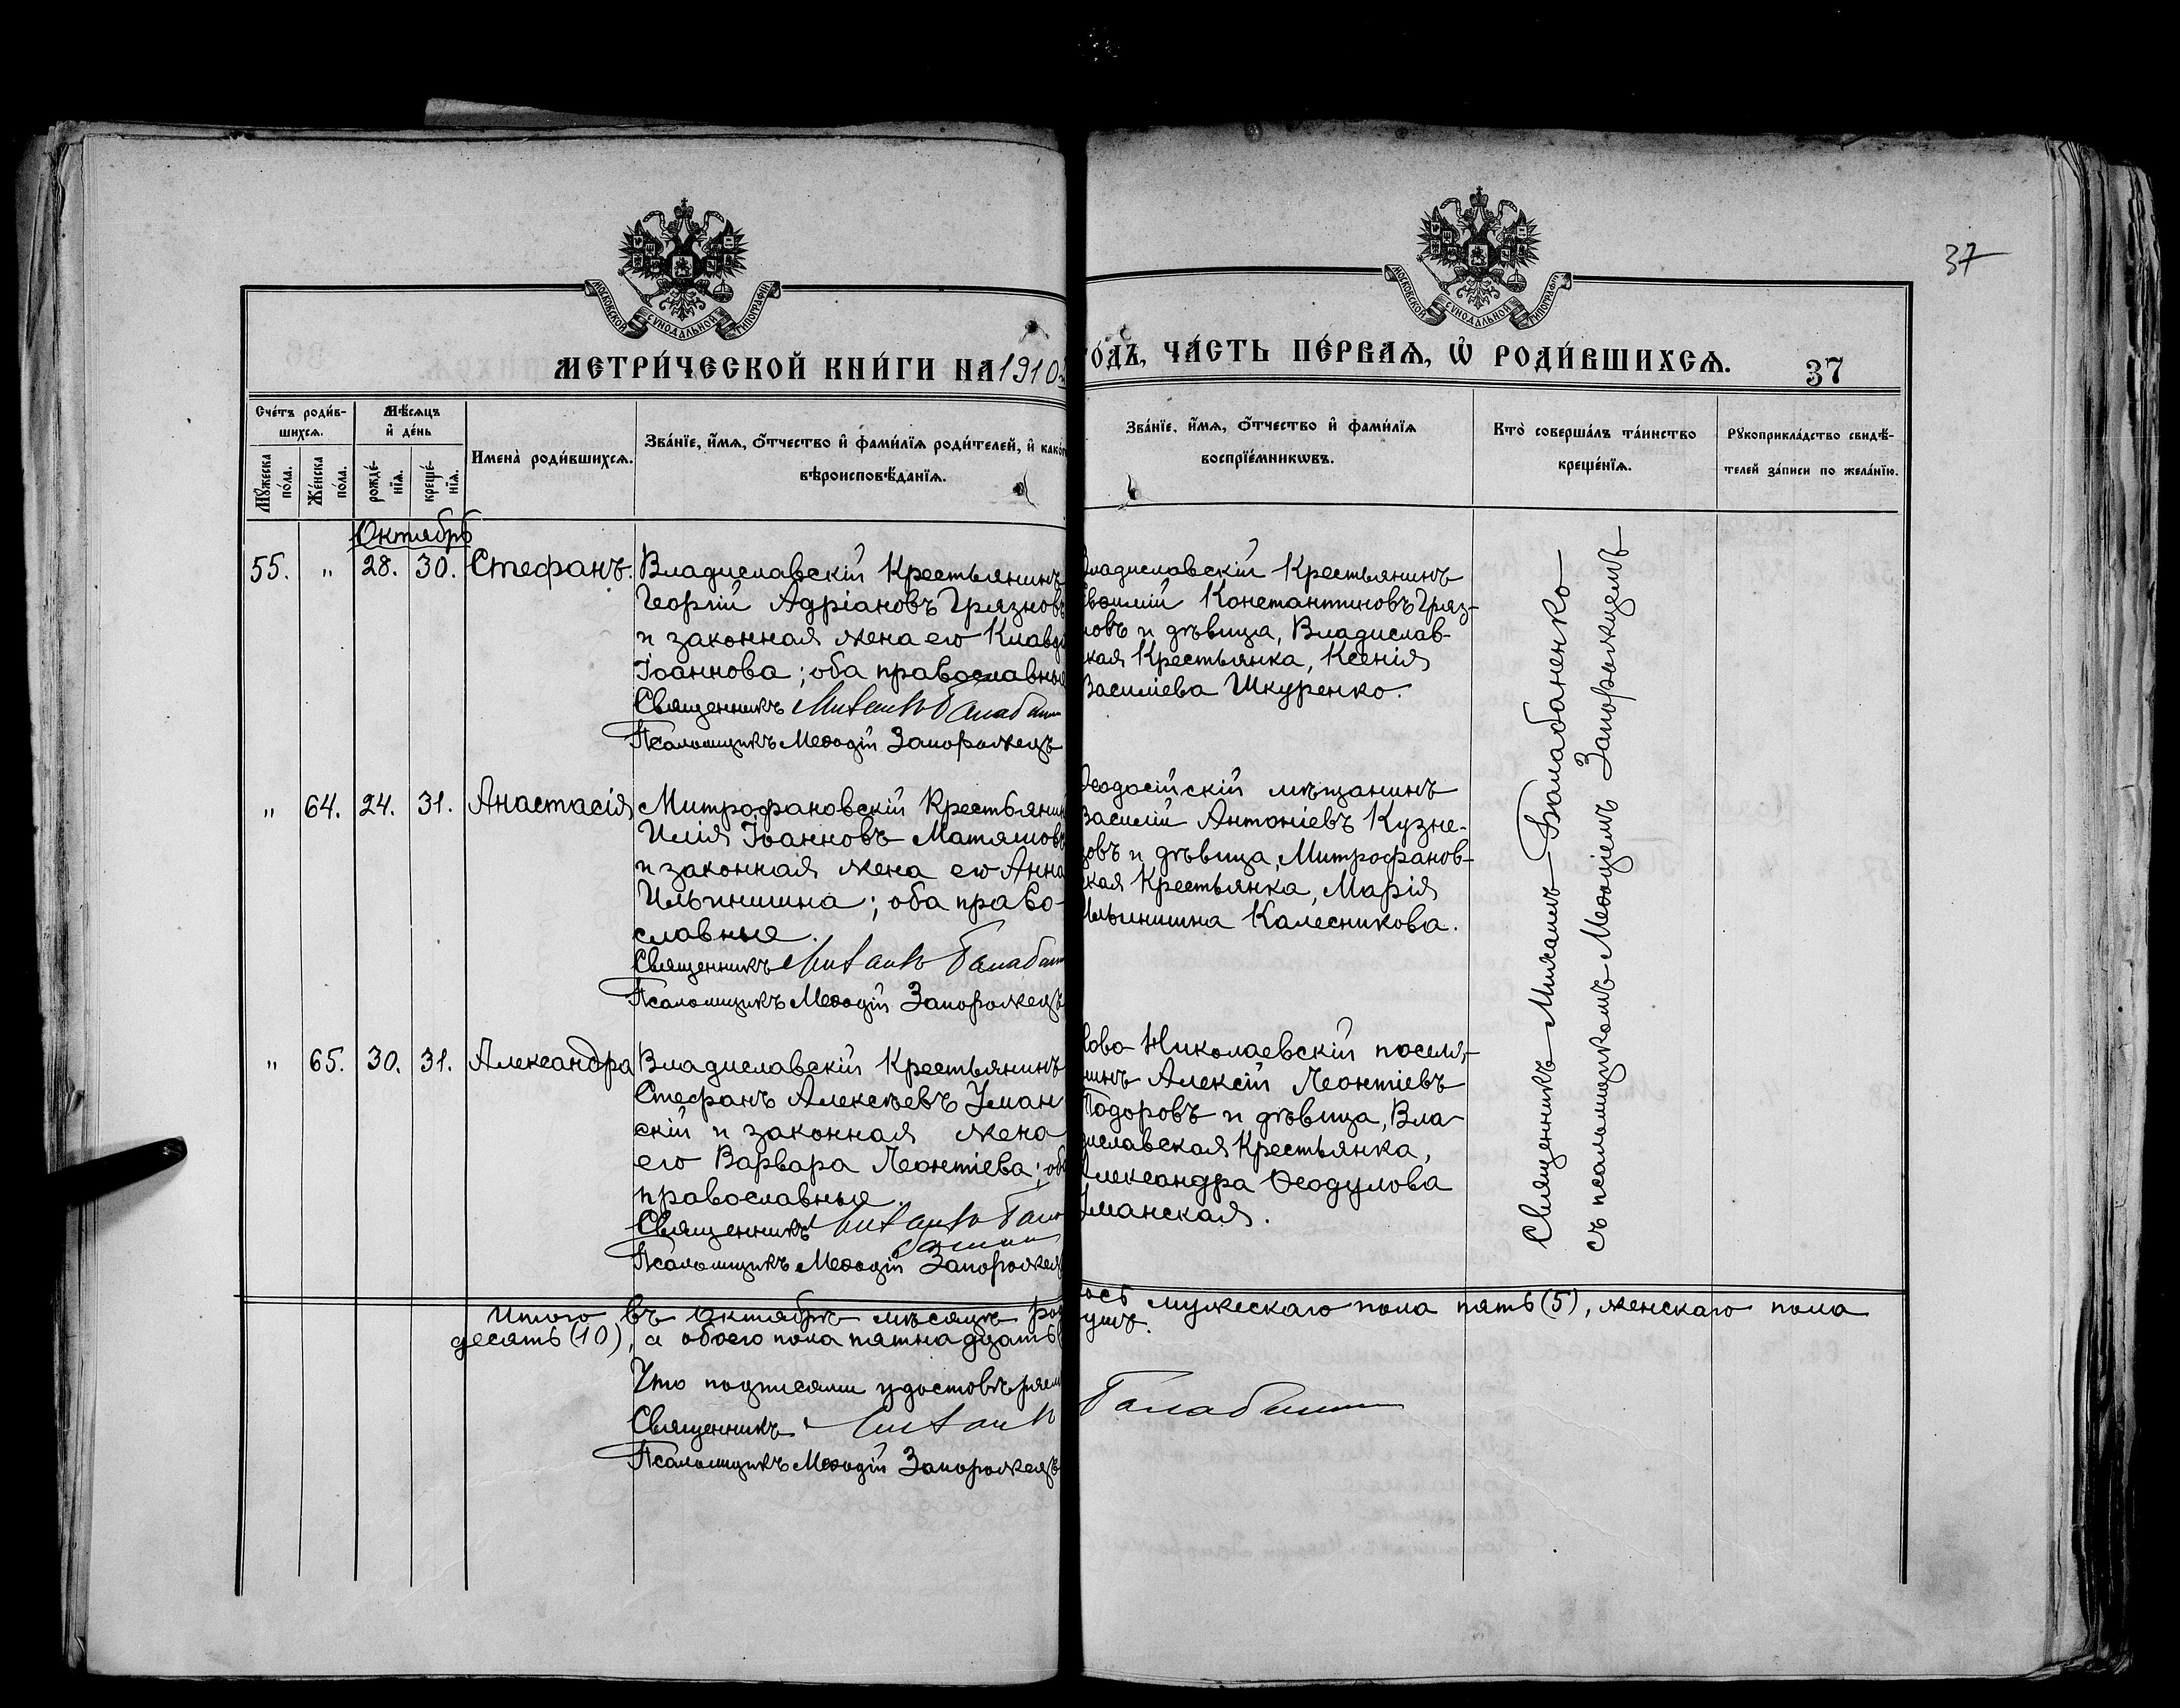 37
МОСКОВСКОЙ СѴНОДАЛЬНОЙ ТИПОГРАФІИ
МОСКОВСКОЙ СѴНОДАЛЬНОЙ ТИПОГРАФІИ
МЕТРИ́ЧЕСКОЙ КНИ́ГИ НА 1910
ГО́ДЪ, ЧА́СТЬ ПЕ́РВАѦ, Ѡ҆ РОДИ́ВШИХСѦ.
37
Сче́тъ роди́в-
шихсѧ.
Мѣ́сѧцъ
и҆ де́нь
Мꙋ́жеска
по́ла.
Же́нска
по́ла.
рожде́-
нїѧ.
креще́-
нїѧ.
Имена̀ роди́вшихсѧ.
Зва́нїе, и҆́мѧ, ѻ҆́тчество и҆ фами́лїѧ роди́телей, и҆ како́гѡ
вѣроисповѣ́данїѧ.
Зва́нїе, и҆́мѧ, ѻ҆́тчество и҆ фами́лїѧ
воспрїе́мникѡвъ.
Кто̀ соверша́лъ та́инство
креще́нїѧ.
Рꙋкоприкла́дство свидѣ́-
телей за́писи по жела́нїю.
Октябрь
55. " 28. 30. Стефанъ.
Владиславскій Крестьянинъ
Георгій Адріановъ Грязновъ
и законная жена его Клавді
Іоаннова; оба православные
Священникъ Михаилъ Балабан
Псаломщикъ Меѳодій Запорожецъ
Владиславскій Крестьянинъ
Константиновъ Гряз-
новъ и дѣвица, Владислав-
ская Крестьянка, Ксенія
Василіева Шкуренко.
" 64. 24. 31. Анастасія
Митрофановскій Крестьянин
Илія Іоанновъ Матяшовъ
и законная жена его Анна
Ильинишна; оба право-
славные.
Священникъ Михаилъ Балабан
Псаломщикъ Меѳодій Запорожецъ
Ѳеодосійскій мѣщанинъ
Василій Антоніевъ Кузне-
цовъ и дѣвица, Митрофанов-
ская Крестьянка, Марія
Ильинишна Калесникова.
" 65. 30. 31. Александра
Владиславскій Крестьянинъ
Стефанъ Алексѣевъ Уман-
скій и законная жена
его Варвара Леонтіева; оба
православные.
Священникъ Михаилъ Бала
баненко
Псаломщикъ Меѳодій Запорожец
Ново-Николаевскій поселя-
нинъ Алексій Леонтіевъ
Тодоровъ и дѣвица, Вла-
диславская Крестьянка,
Александра Ѳеодулова
Уманская.
Священникъ Михаилъ Балабаненко
съ псаломщикомъ Меѳодіемъ Запорожцемъ
Итого въ Октябрѣ мѣсяцѣ род
ось мужескаго пола пять (5), женскаго пола
десять (10), а обоего пола пятнадцать
душъ.
Что подписями удостовѣряем
Священникъ Михаилъ Балабаненко
Псаломщикъ Меѳодій Запорожецъ